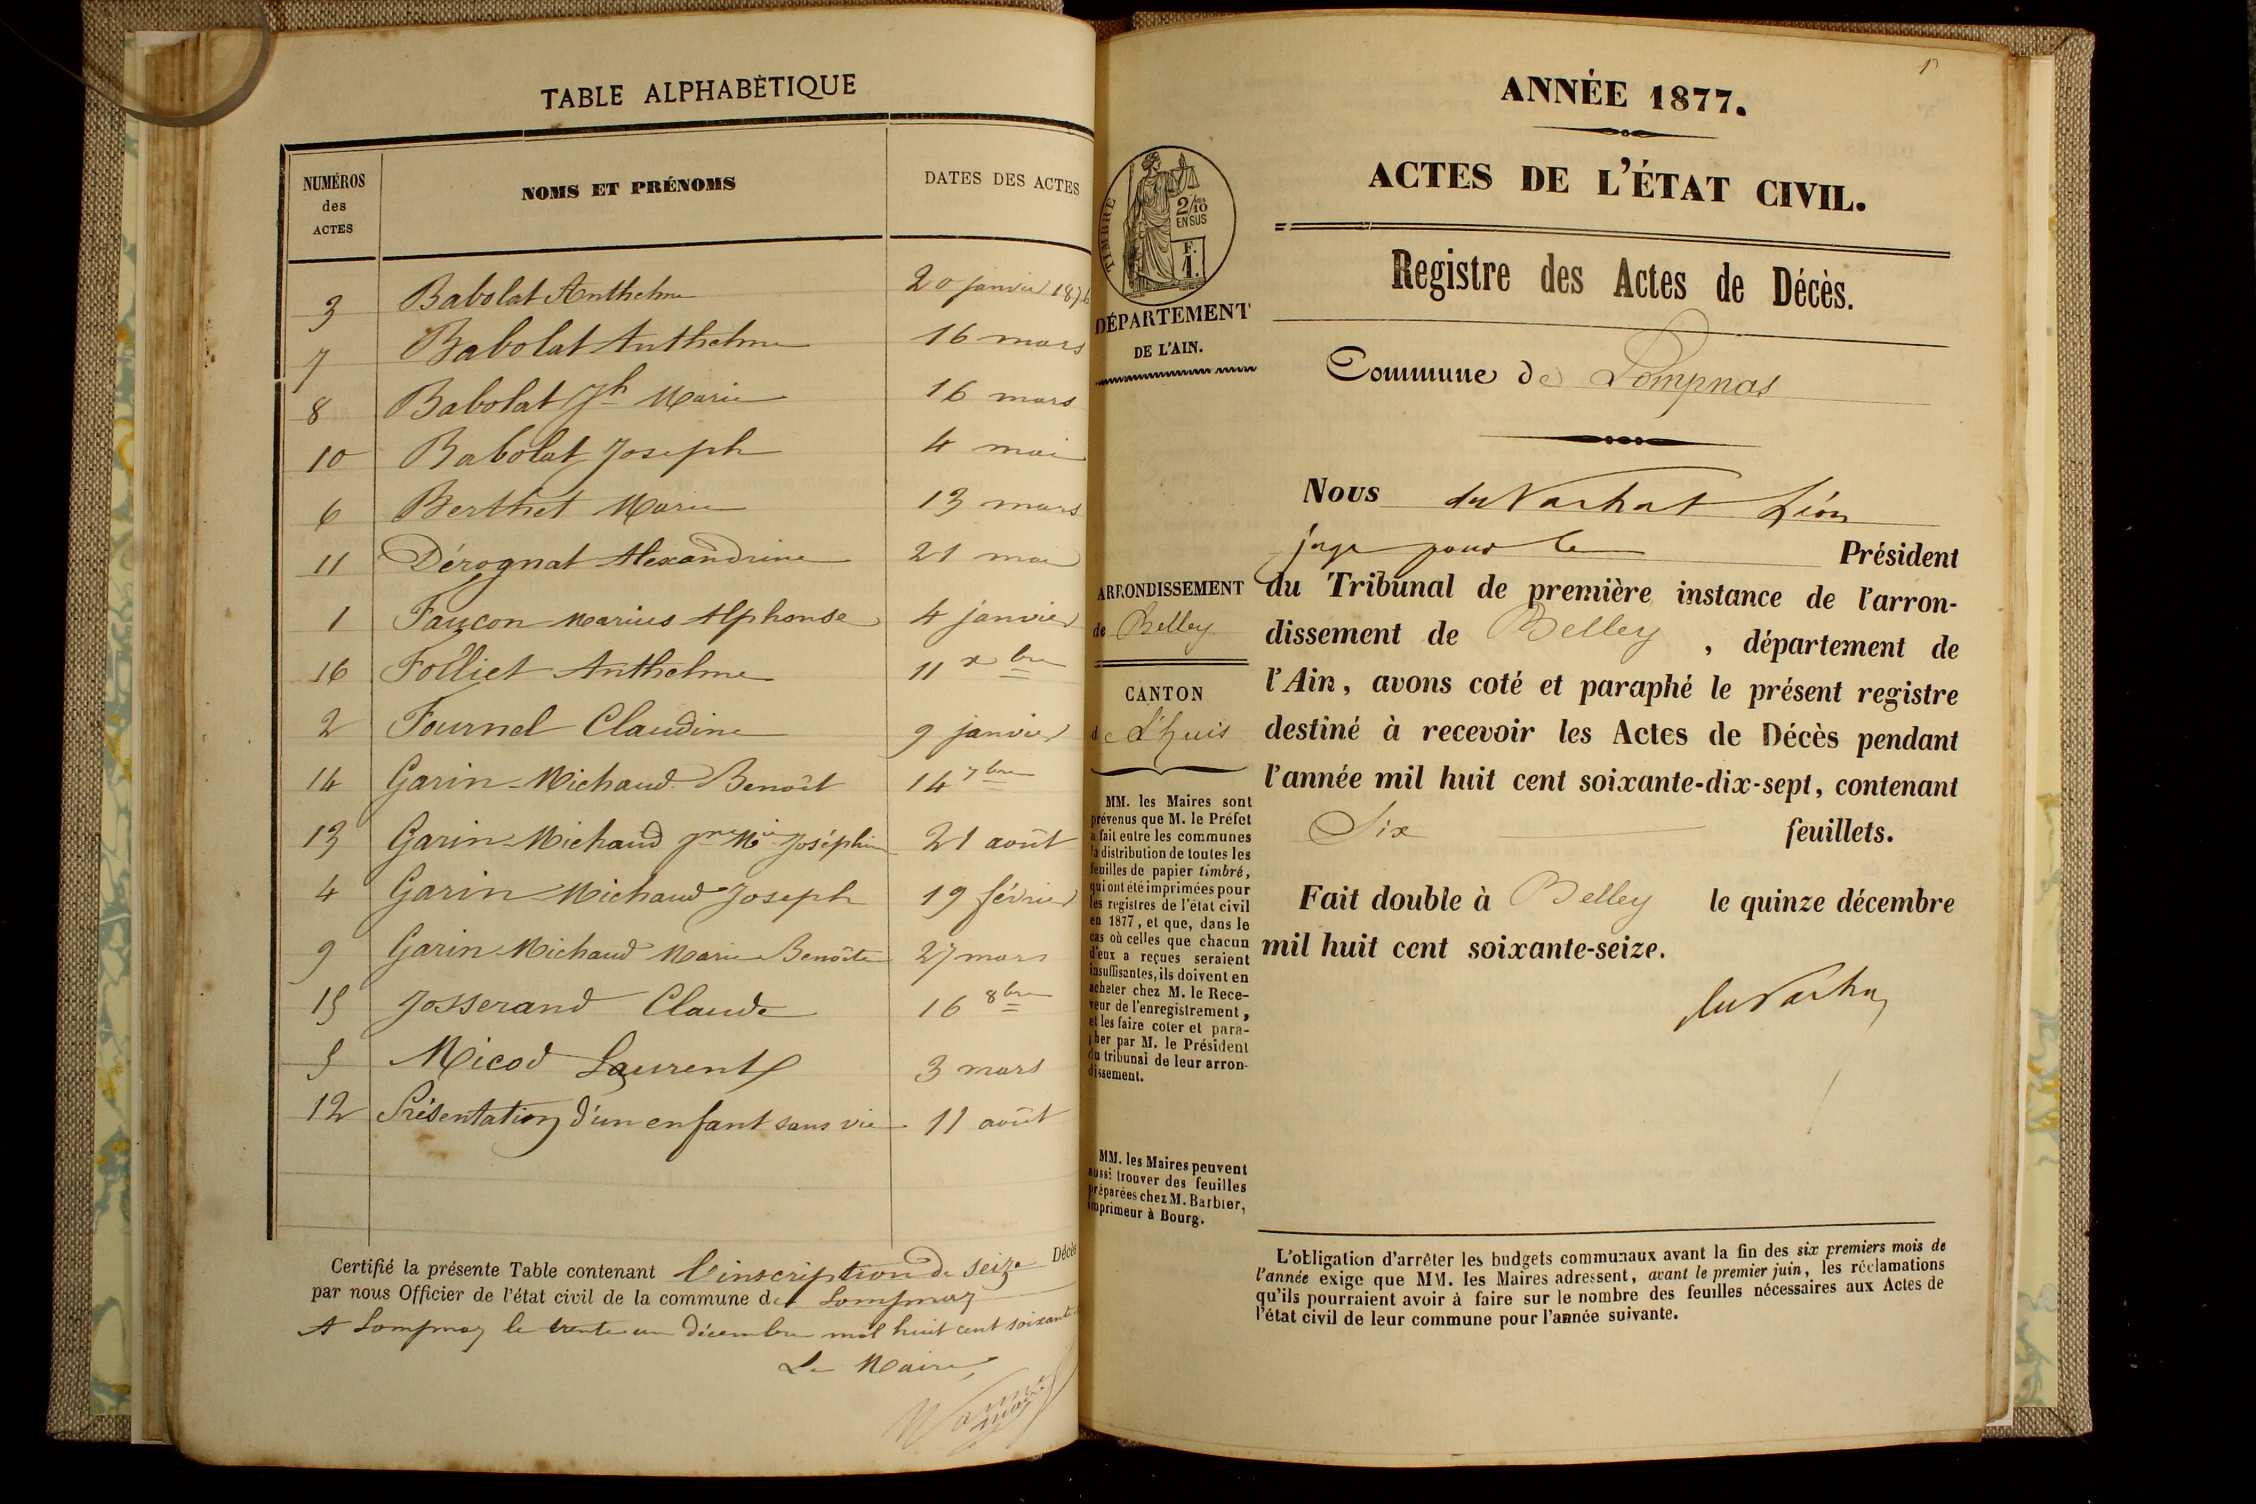 TABLE ALPHABÉTIQUE
NUMÉROS des ACTES | NOMS ET PRÉNOMS | DATES DES ACTES
3 Babolat Anthelme 20 janvier 1876
7 Babolat Anthelme 16 mars
8 Babolat Jh Marie 16 mars
10 Babolat Joseph 4 mai
6 Berthet Marie 13 mars
11 Dérognat Alexandrine 21 mai
1 Faucon Marius Alphonse 4 janvier
16 Folliet Anthelme 11 xbre
2 Fournel Claudine 9 janvier
14 Garin-Michaud Benoît 14 7bre
13 Garin-Michaud Jne Mie Joséphine 21 août
4 Garin Michaud Joseph 19 février
9 Garin Michaud Marie Benoîte 27 mars
15 Josserand Claude 16 8bre
5 Micod Laurent 3 mars
12 Présentation d'un enfant sans vie 11 août
Certifié la présente Table contenant l'inscription de seize Décès
par nous Officier de l'état civil de la commune de Lompnaz
A Lompnaz le trente un décembre mil huit cent soixante
Le Maire,
1
ANNÉE 1877.
ACTES DE L'ÉTAT CIVIL.
Registre des Actes de Décès.
TIMBRE
2/10
EN SUS
F.
1.
DÉPARTEMENT
DE L'AIN.
Commune de Lompnas
Nous Léon
juge pour le Président
du Tribunal de première instance de l'arron-
dissement de Belley, département de
l'Ain, avons coté et paraphé le présent registre
destiné à recevoir les Actes de Décès pendant
l'année mil huit cent soixante-dix-sept, contenant
Six feuillets.
Fait double à Belley le quinze décembre
mil huit cent soixante-seize.
ARRONDISSEMENT
de Belley
CANTON
de L'huis
MM. les Maires sont
prévenus que M. le Préfet
a fait entre les communes
la distribution de toutes les
feuilles de papier timbré,
qui ont été imprimées pour
les registres de l'état civil
en 1877, et que, dans le
cas où celles que chacun
d'eux a reçues seraient
insuffisantes, ils doivent en
acheter chez M. le Rece-
veur de l'enregistrement,
et les faire coter et para-
pher par M. le Président
du tribunal de leur arron-
dissement.
MM. les Maires peuvent
aussi trouver des feuilles
préparées chez M. Barbier,
imprimeur à Bourg.
L'obligation d'arrêter les budgets communaux avant la fin des six premiers mois de
l'année exige que MM. les Maires adressent, avant le premier juin, les réclamations
qu'ils pourraient avoir à faire sur le nombre des feuilles nécessaires aux Actes de
l'état civil de leur commune pour l'année suivante.